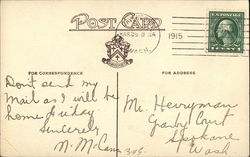 POST CARD
MAR 29
1915
WASH.
FOR CORRESPONDENCE
FOR ADDRESS
Don't send my
Mail as I will be
home Friday
Sincerely
N. M. Cann
Mr. Herryman
Granby Court
Spokane
Wash.
305